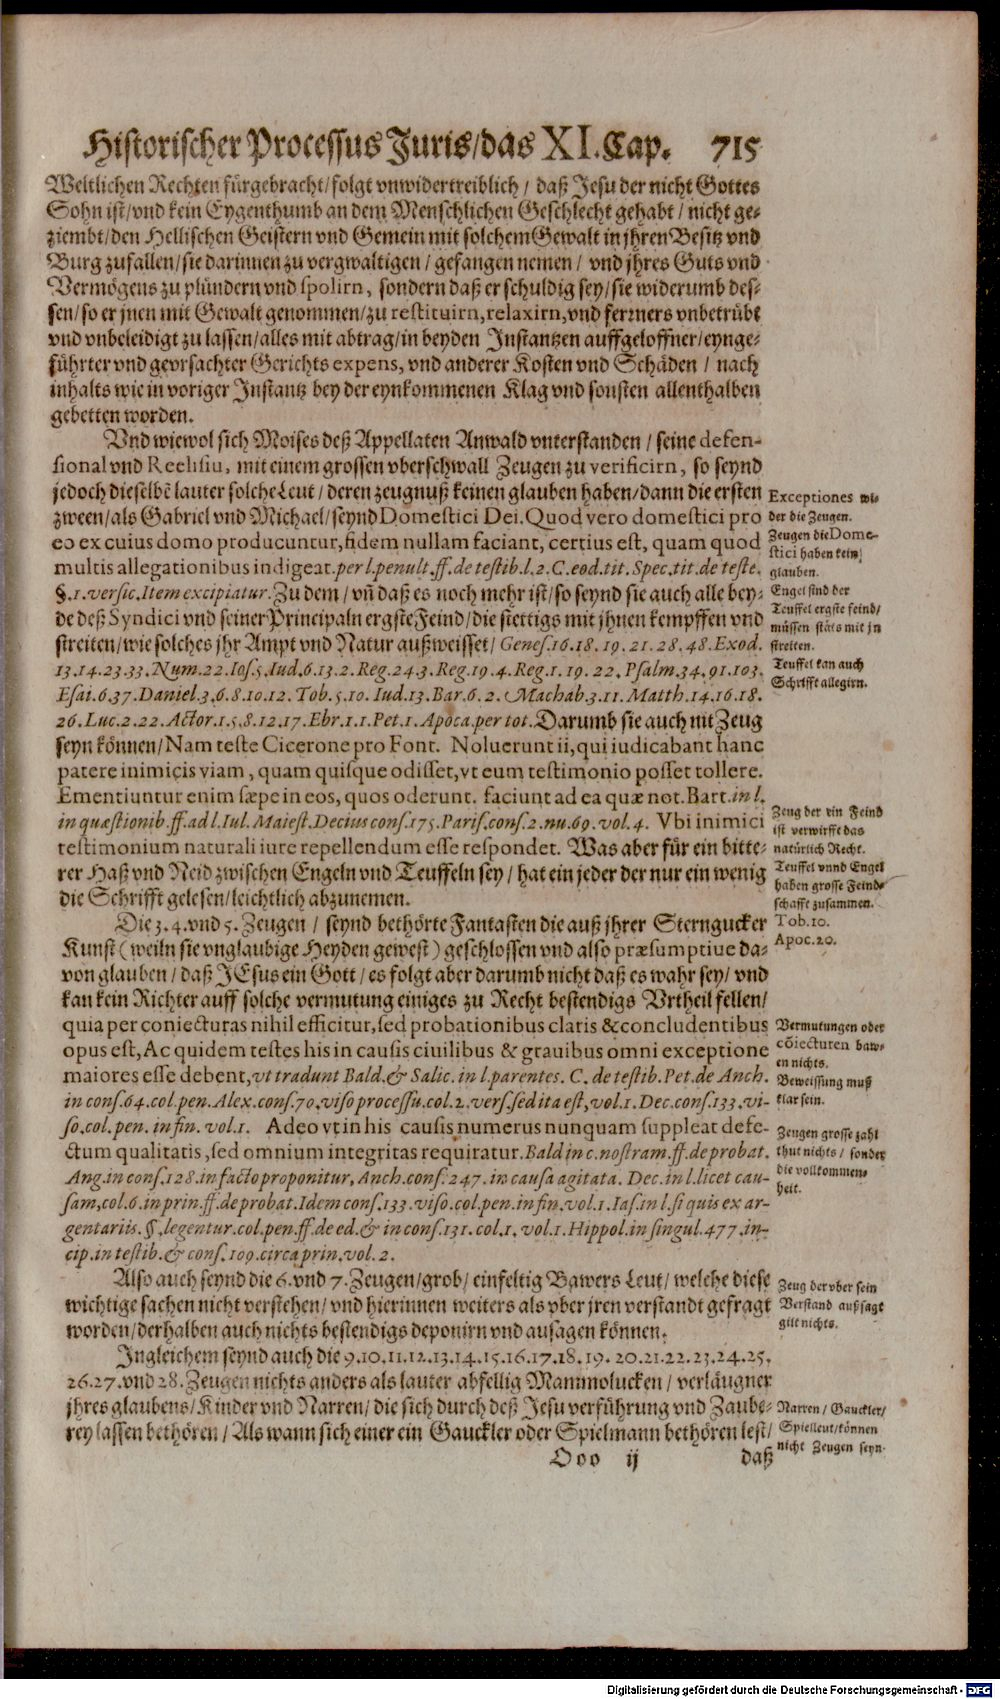 Historischer Processus Juris/das XI. Cap. 715
Weltlichen Rechten fürgebracht/folgt vnwidertreiblich / daß Jesu der nicht Gottes
Sohn ist/vnd kein Eygenthumb an dem Menschlichen Geschlecht gehabt / nicht ge-
ziembt/den Hellischen Geistern vnd Gemein mit solchem Gewalt in jhren Besitz vnd
Burg zufallen/sie darinnen zu vergwaltigen / gefangen nemen / vnd jhres Guts vnd
Vermögens zu plündern vnd spolirn, sondern daß er schuldig sey/sie widerumb des-
sen/so er jnen mit Gewalt genommen/zu restituirn, relaxirn, vnd ferrners vnbetrübt
vnd vnbeleidigt zu lassen/alles mit abtrag/in beyden Instantzen auffgeloffner/eynge-
führter vnd gevrsachter Gerichts expens, vnd anderer Kosten vnd Schäden / nach
inhalts wie in voriger Instantz bey der eynkommenen Klag vnd sonsten allenthalben
gebetten worden.
Vnd wiewol sich Moises deß Appellaten Anwald vnterstanden / seine defen-
sional vnd Reelisiu, mit einem grossen vberschwall Zeugen zu verificirn, so seynd
jedoch dieselbē lauter solche Leut / deren zeugnuß keinen glauben haben/dann die ersten
zween/als Gabriel vnd Michael/seynd Domestici Dei. Quod vero domestici pro
eo ex cuius domo producuntur, fidem nullam faciant, certius est, quam quod
multis allegationibus indigeat. per l. penult. ff. de testib. l. 2. C. eod. tit. Spec. tit. de teste.
§. 1. versic. Item excipiatur. Zu dem / vñ daß es noch mehr ist/so seynd sie auch alle bey-
de deß Syndici vnd seiner Principaln ergste Feind/die stettigs mit jhnen kempffen vnd
streiten/wie solches jhr Ampt vnd Natur außweisset/ Genes. 16. 18. 19. 21. 28. 48. Exod.
13. 14. 23. 33. Num. 22. Ios. 5. Iud. 6. 13. 2. Reg. 24. 3. Reg. 19. 4. Reg. 1. 19. 22. Psalm. 34. 91. 103.
Esai. 6. 37. Daniel. 3. 6. 8. 10. 12. Tob. 5. 10. Iud. 13. Bar. 6. 2. Machab. 3. 11. Matth. 14. 16. 18.
26. Luc. 2. 22. Actor. 1. 5. 8. 12. 17. Ebr. 1. 1. Pet. 1. Apoca. per tot. Darumb sie auch nit Zeug
seyn können/ Nam teste Cicerone pro Font. Noluerunt ii, qui iudicabant hanc
patere inimicis viam, quam quisque odisset, vt eum testimonio posset tollere.
Ementiuntur enim sæpe in eos, quos oderunt. faciunt ad ea quæ not. Bart. in l.
in quæstionib. ff. ad l. Iul. Maiest. Decius cons. 175. Paris. cons. 2. nu. 69. vol. 4. Vbi inimici
testimonium naturali iure repellendum esse respondet. Was aber für ein bitte-
rer Haß vnd Neid zwischen Engeln vnd Teuffeln sey / hat ein jeder der nur ein wenig
die Schrifft gelesen/leichtlich abzunemen.
Die 3. 4. vnd 5. Zeugen / seynd bethörte Fantasten die auß jhrer Sterngucker
Kunst (weiln sie vnglaubige Heyden gewest) geschlossen vnd also præsumptiue da-
von glauben / daß JEsus ein Gott / es folgt aber darumb nicht daß es wahr sey / vnd
kan kein Richter auff solche vermutung einiges zu Recht bestendigs Vrtheil fellen/
quia per coniecturas nihil efficitur, sed probationibus claris & concludentibus
opus est, Ac quidem testes his in causis ciuilibus & grauibus omni exceptione
maiores esse debent, vt tradunt Bald. & Salic. in l. parentes. C. de testib. Pet. de Anch.
in cons. 64. col. pen. Alex. cons. 70. viso processu. col. 2. vers. sed ita est, vol. 1. Dec. cons. 133. vi-
so. col. pen. in fin. vol. 1. Adeo vt in his causis numerus nunquam suppleat defe-
ctum qualitatis, sed omnium integritas requiratur. Bald in c. nostram. ff. de probat.
Ang. in cons. 128. in facto proponitur, Anch. cons. 247. in causa agitata. Dec. in l. licet cau-
sam, col. 6. in prin. ff. de probat. Idem cons. 133. viso. col. pen. in fin. vol. 1. Ias. in l. si quis ex ar-
gentariis. §. legentur. col. pen. ff. de ed. & in cons. 131. col. 1. vol. 1. Hippol. in singul. 477. in-
cip. in testib. & cons. 109. circa prin. vol. 2.
Also auch seynd die 6. vnd 7. Zeugen/grob/einfeltig Bawers Leut/welche diese
wichtige sachen nicht verstehen / vnd hierinnen weiters als vber jren verstandt gefragt
worden/derhalben auch nichts bestendigs deponirn vnd aussagen können.
Ingleichem seynd auch die 9. 10. 11. 12. 13. 14. 15. 16. 17. 18. 19. 20. 21. 22. 23. 24. 25.
26. 27. vnd 28. Zeugen nichts anders als lauter abfellig Mammolucken / verläugner
jhres glaubens/Kinder vnd Narren / die sich durch deß Jesu verführung vnd Zaube-
rey lassen bethören / Als wann sich einer ein Gauckler oder Spielmann bethören lest/
Ooo ij daß
Exceptiones wi-
der die Zeugen.
Zeugen die Dome-
stici haben kein
glauben.
Engel sind der
Teuffel ergste feind/
müssen stäts mit jn
streiten.
Teuffel kan auch
Schrifft allegirn.
Zeug der ein Feind
ist verwirfft das
natürlich Recht.
Teuffel vnnd Engel
haben grosse Feind-
schafft zusammen.
Tob. 10.
Apoc. 20.
Vermutungen oder
cōiecturen baw-
en nichts.
Beweissung muß
klar sein.
Zeugen grosse zahl
thut nichts / sonder
die vollkommen-
heit.
Zeug der vber sein
Verstand aussagt
gilt nichts.
Narren / Gauckler/
Spielleut/können
nicht Zeugen seyn.
Digitalisierung gefördert durch die Deutsche Forschungsgemeinschaft - DFG